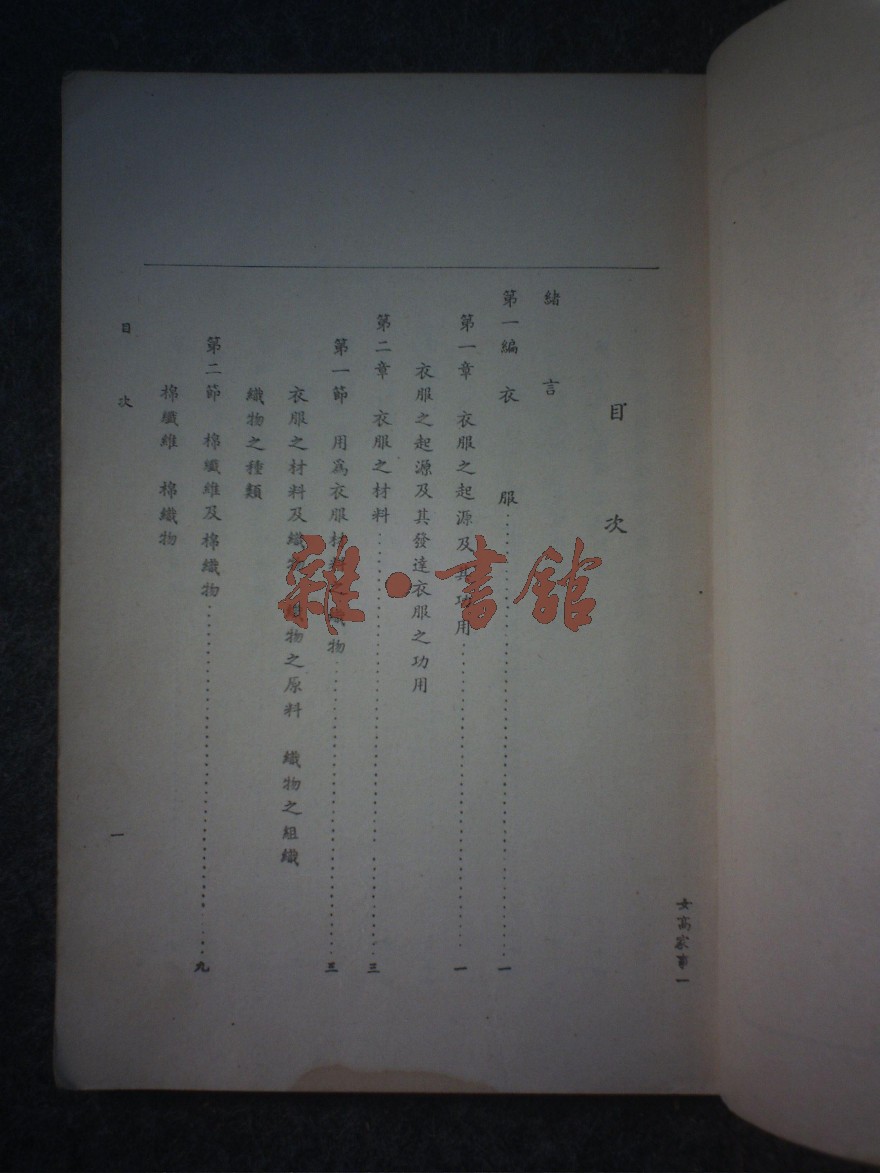 女高家事一
目次
緒言
第一編 衣服……一
第一章 衣服之起源及其功用……一
衣服之起源及其發達衣服之功用
第二章 衣服之材料……三
第一節 用爲衣服材料之織物……三
衣服之材料及織物 織物之原料 織物之組織
織物之種類
第二節 棉纖維及棉織物……九
棉纖維 棉織物
目次
一
雜·書館